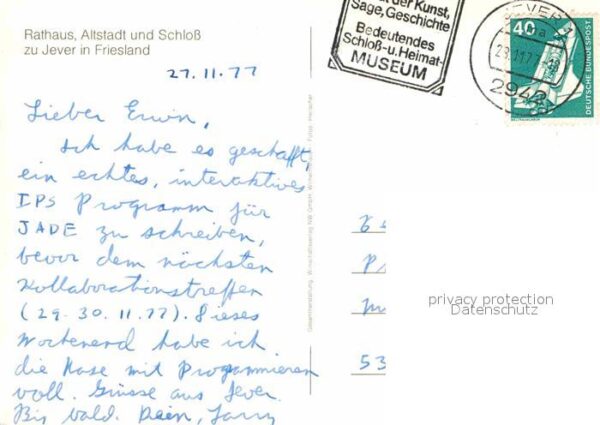 Rathaus, Altstadt und Schloß
zu Jever in Friesland
der Kunst,
Sage, Geschichte
Bedeutendes
Schloß-u. Heimat-
MUSEUM
JEVER 1
2942
40
DEUTSCHE BUNDESPOST
27.11.77
Lieber Erwin,
Ich habe es geschafft,
ein echtes, interaktives
IPS Programm für
JADE zu schreiben,
bevor dem nächsten
Kollaborationstreffen
(29.30.11.77). Dieses
Wochenend habe ich
die Nase mit Programmieren
voll. Grüsse aus Jever.
Bis bald. Dein, Larry
53
privacy protection
Datenschutz